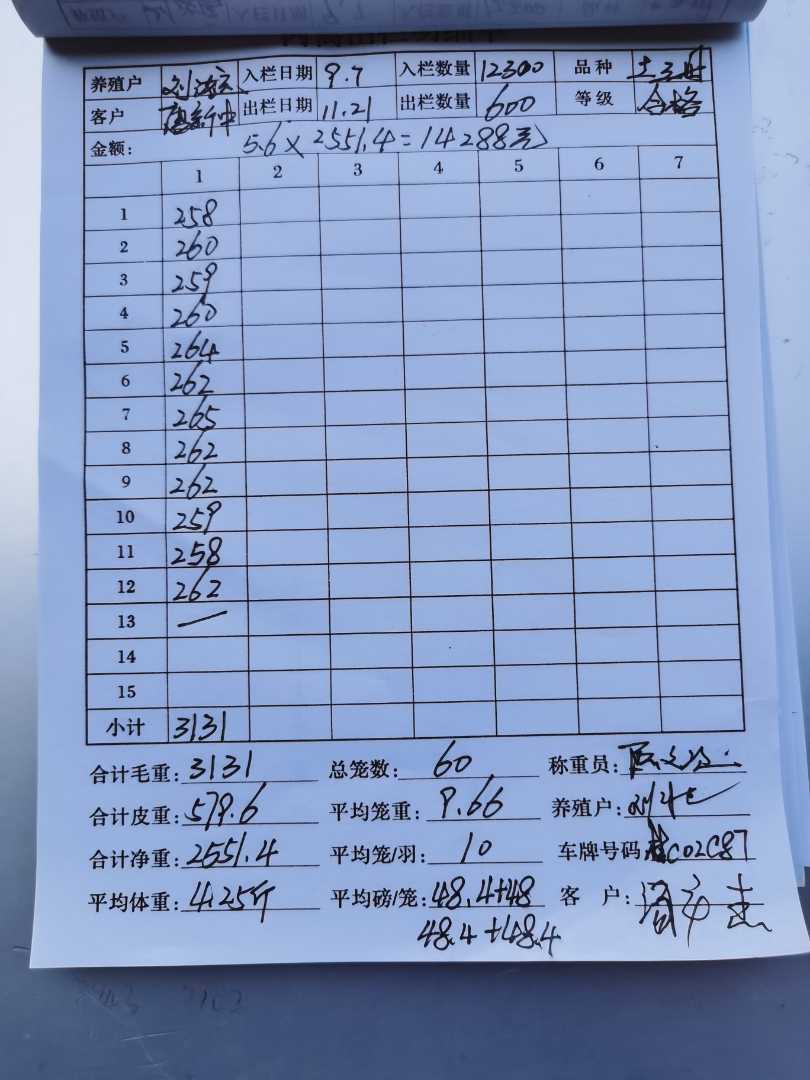 养殖户 入栏日期 9.7 入栏数量 12300 品种
客户 出栏日期 11.21 出栏数量 600 等级 合格
金额: 5.6×2551.4=14288元
1 2 3 4 5 6 7
1 258
2 260
3 259
4 260
5 264
6 262
7 265
8 262
9 262
10 259
11 258
12 262
13 —
14
15
小计 3131
合计毛重: 3131 总笼数: 60 称重员:
合计皮重: 579.6 平均笼重: 9.66 养殖户:
合计净重: 2551.4 平均笼/羽: 10 车牌号码: C02C87
平均体重: 4.25斤 平均磅/笼: 48.4+48 客户:
48.4+48.4